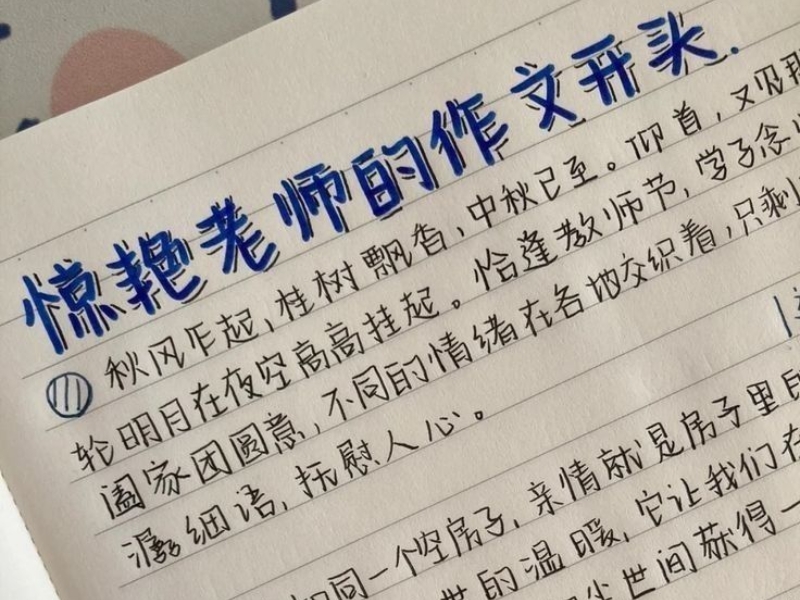 惊艳老师的作文开头.
秋风乍起,桂树飘香,中秋已至。仰首,又见那
轮明月在夜空高高挂起。恰逢教师节,学子念
阖家团圆意,不同的情绪在各地交织着,只剩
潺细语,抚慰人心。
如同一个空房子,亲情就是房子里的
的温暖,它让我们在
世间获得一